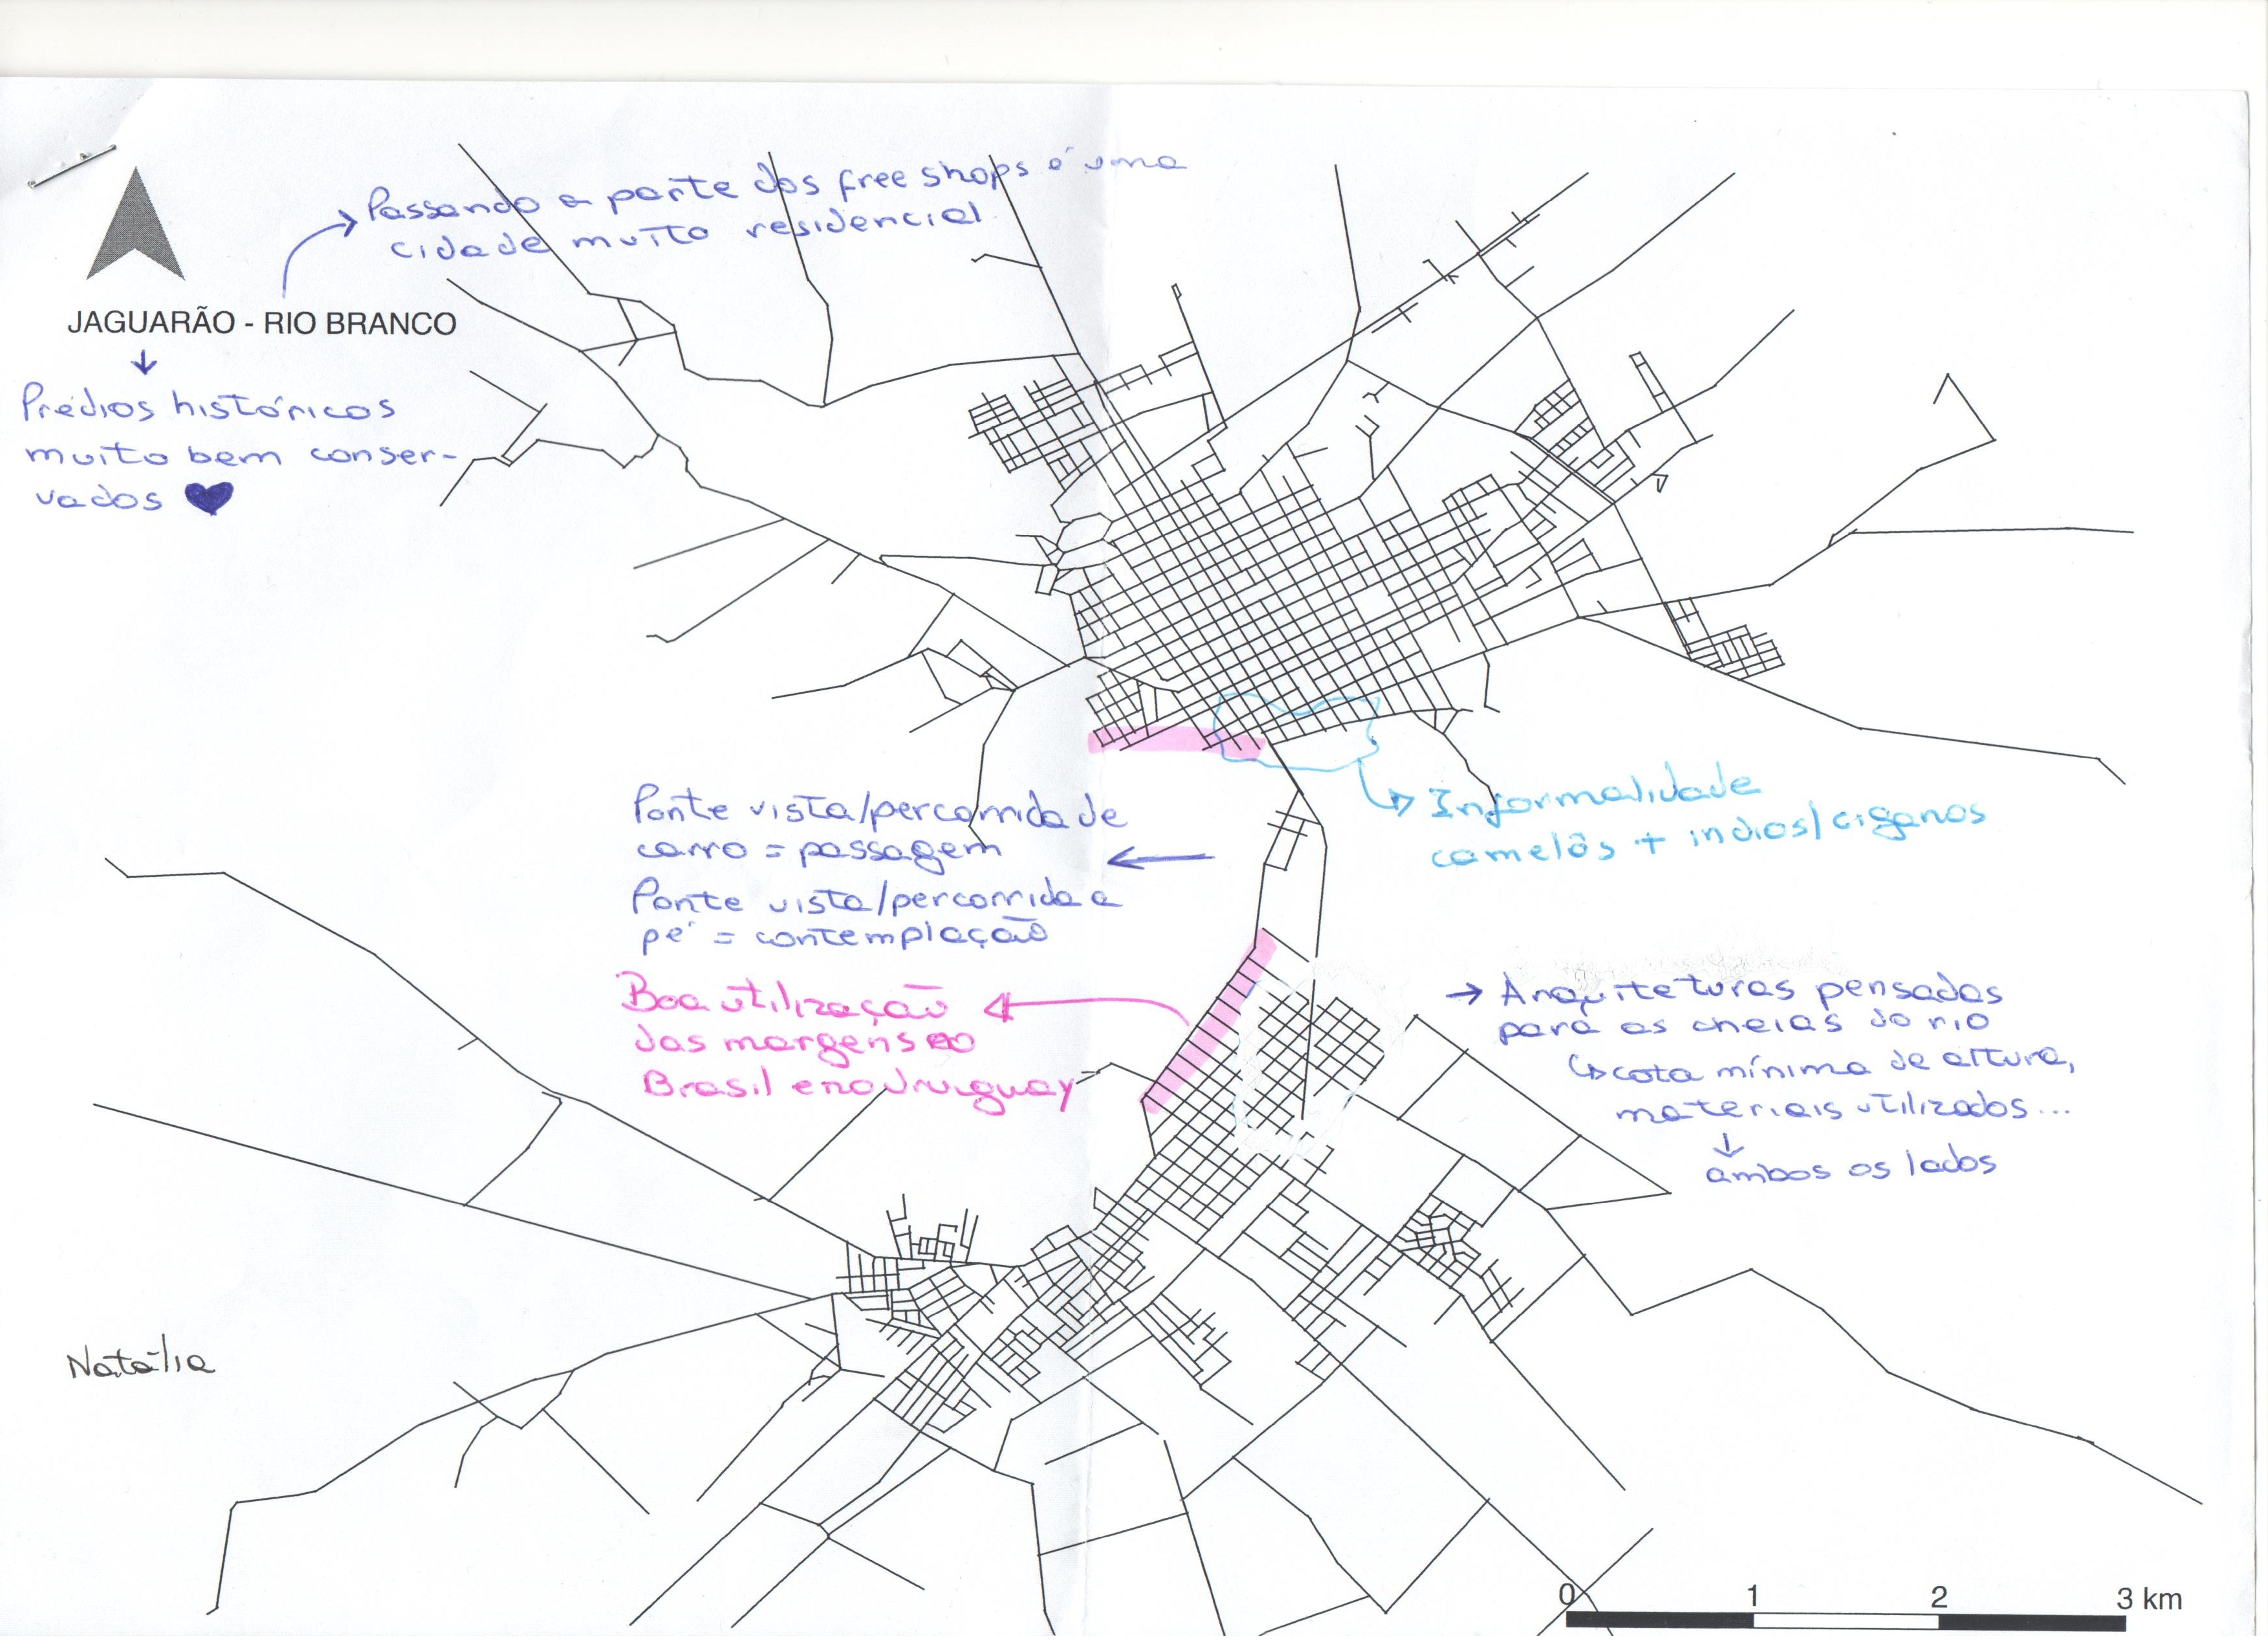 Passando a parte dos free shops é uma
cidade muito residencial
JAGUARÃO - RIO BRANCO
Prédios históricos
muito bem conser-
vados
Ponte vista/percorrida de
carro = passagem
Ponte vista/percorrida a
pé = contemplação
Informalidade
camelôs + indios/ciganos
Boa utilização
das margens no
Brasil e no Uruguay
Arquiteturas pensadas
para as cheias do rio
cota mínima de altura,
materiais utilizados...
ambos os lados
Natália
0 1 2 3 km